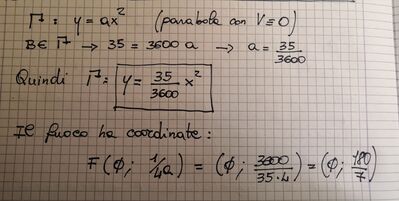 Γ: y = ax² (parabola con V ≡ O)
B ∈ Γ → 35 = 3600 a → a = 35/3600
Quindi Γ: y = 35/3600 x²
Il fuoco ha coordinate:
F(∅; 1/4a) = (∅; 3600/35·4) = (∅; 180/7)